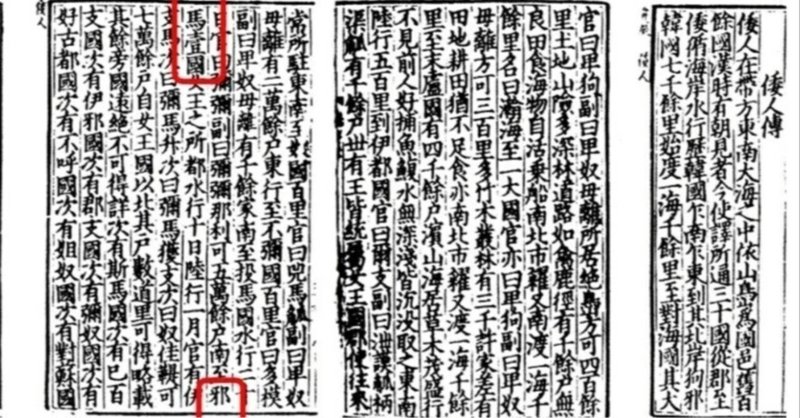 倭人傳
倭人在帶方東南大海之中依山島爲國邑舊百
餘國漢時有朝見者今使譯所通三十國從郡至
倭循海岸水行歷韓國乍南乍東到其北岸狗邪
韓國七千餘里始度一海千餘里至對海國其大
官曰卑狗副曰卑奴毋離所居絶島方可四百餘
里土地山險多深林道路如禽鹿徑有千餘戸無
良田食海物自活乗船南北市糴又南渡一海千
餘里名曰瀚海至一大國官亦曰卑狗副曰卑奴
毋離方可三百里多竹木叢林有三千許家差有
田地耕田猶不足食亦南北市糴又渡一海千餘
里至末盧國有四千餘戸濱山海居草木茂盛行
不見前人好捕魚鰒水無深淺皆沉没取之東南
陸行五百里到伊都國官曰爾支副曰泄謨觚柄
渠觚有千餘戸丗有王皆統屬女王國郡使往來
常所駐東南至奴國百里官曰兕馬觚副曰卑奴
毋離有二萬餘戸東行至不彌國百里官曰多模
副曰卑奴毋離有千餘家南至投馬國水行二十
日官曰彌彌副曰彌彌那利可五萬餘戸南至邪
馬壹國女王之所都水行十日陸行一月官有伊
支馬次曰彌馬升次曰彌馬獲支次曰奴佳鞮可
七萬餘戸自女王國以北其戸數道里可得略載
其餘旁國遠絶不可得詳次有斯馬國次有已百
支國次有伊邪國次有郡支國次有彌奴國次有
好古都國次有不呼國次有姐奴國次有對蘇國
倭人